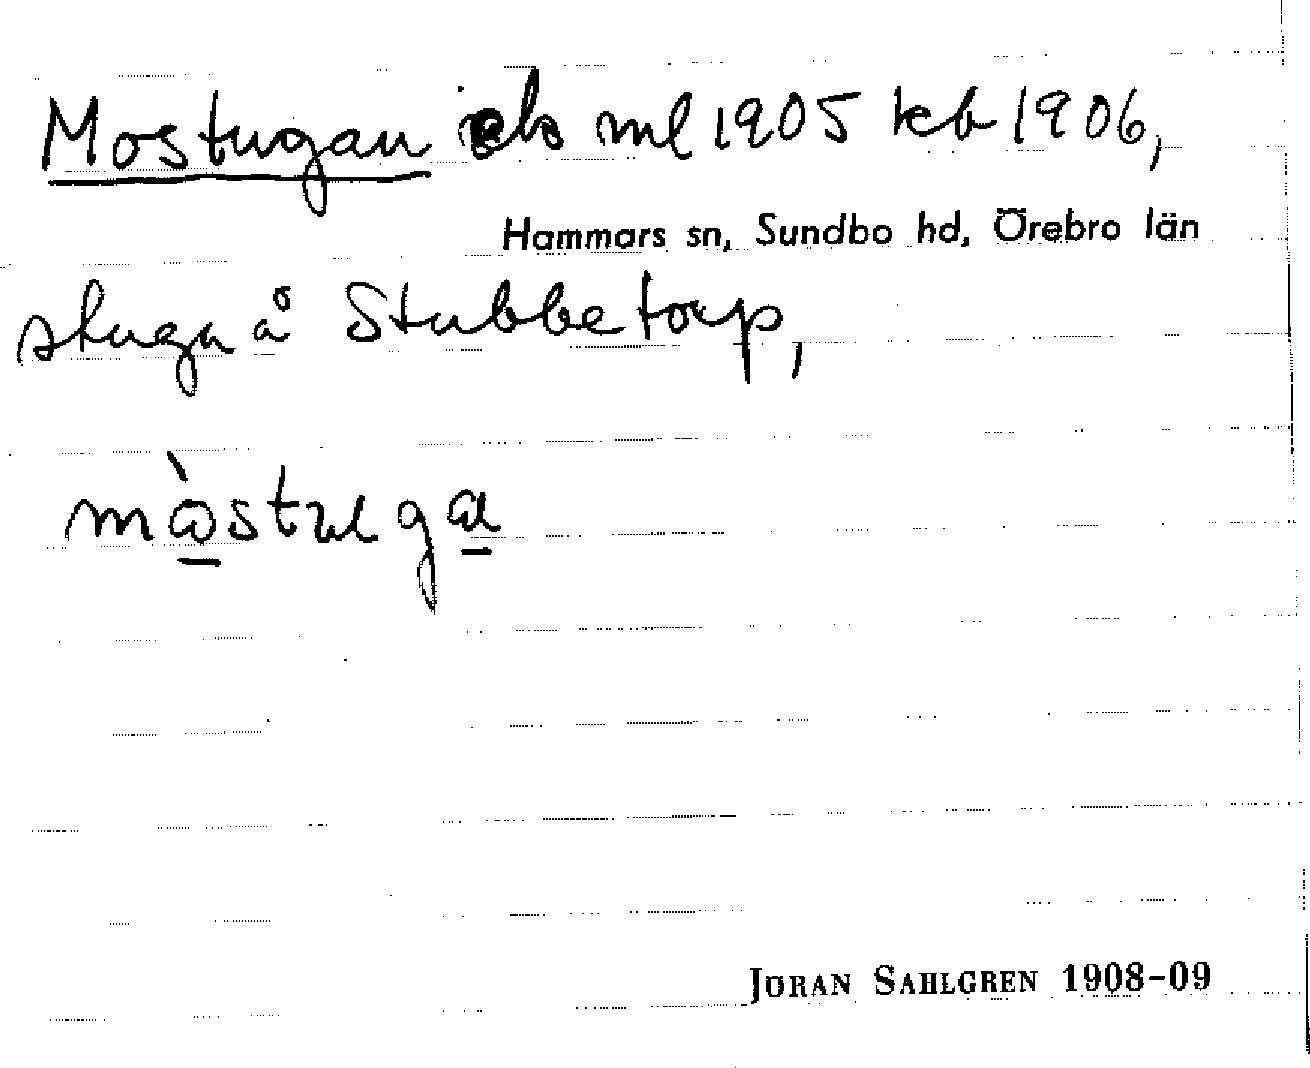 Mostugan ml 1905 kb 1906,
Hammars sn, Sundbo hd, Örebro län
stuga å Stubbetorp,
mòstuga
JÖRAN SAHLGREN 1908-09